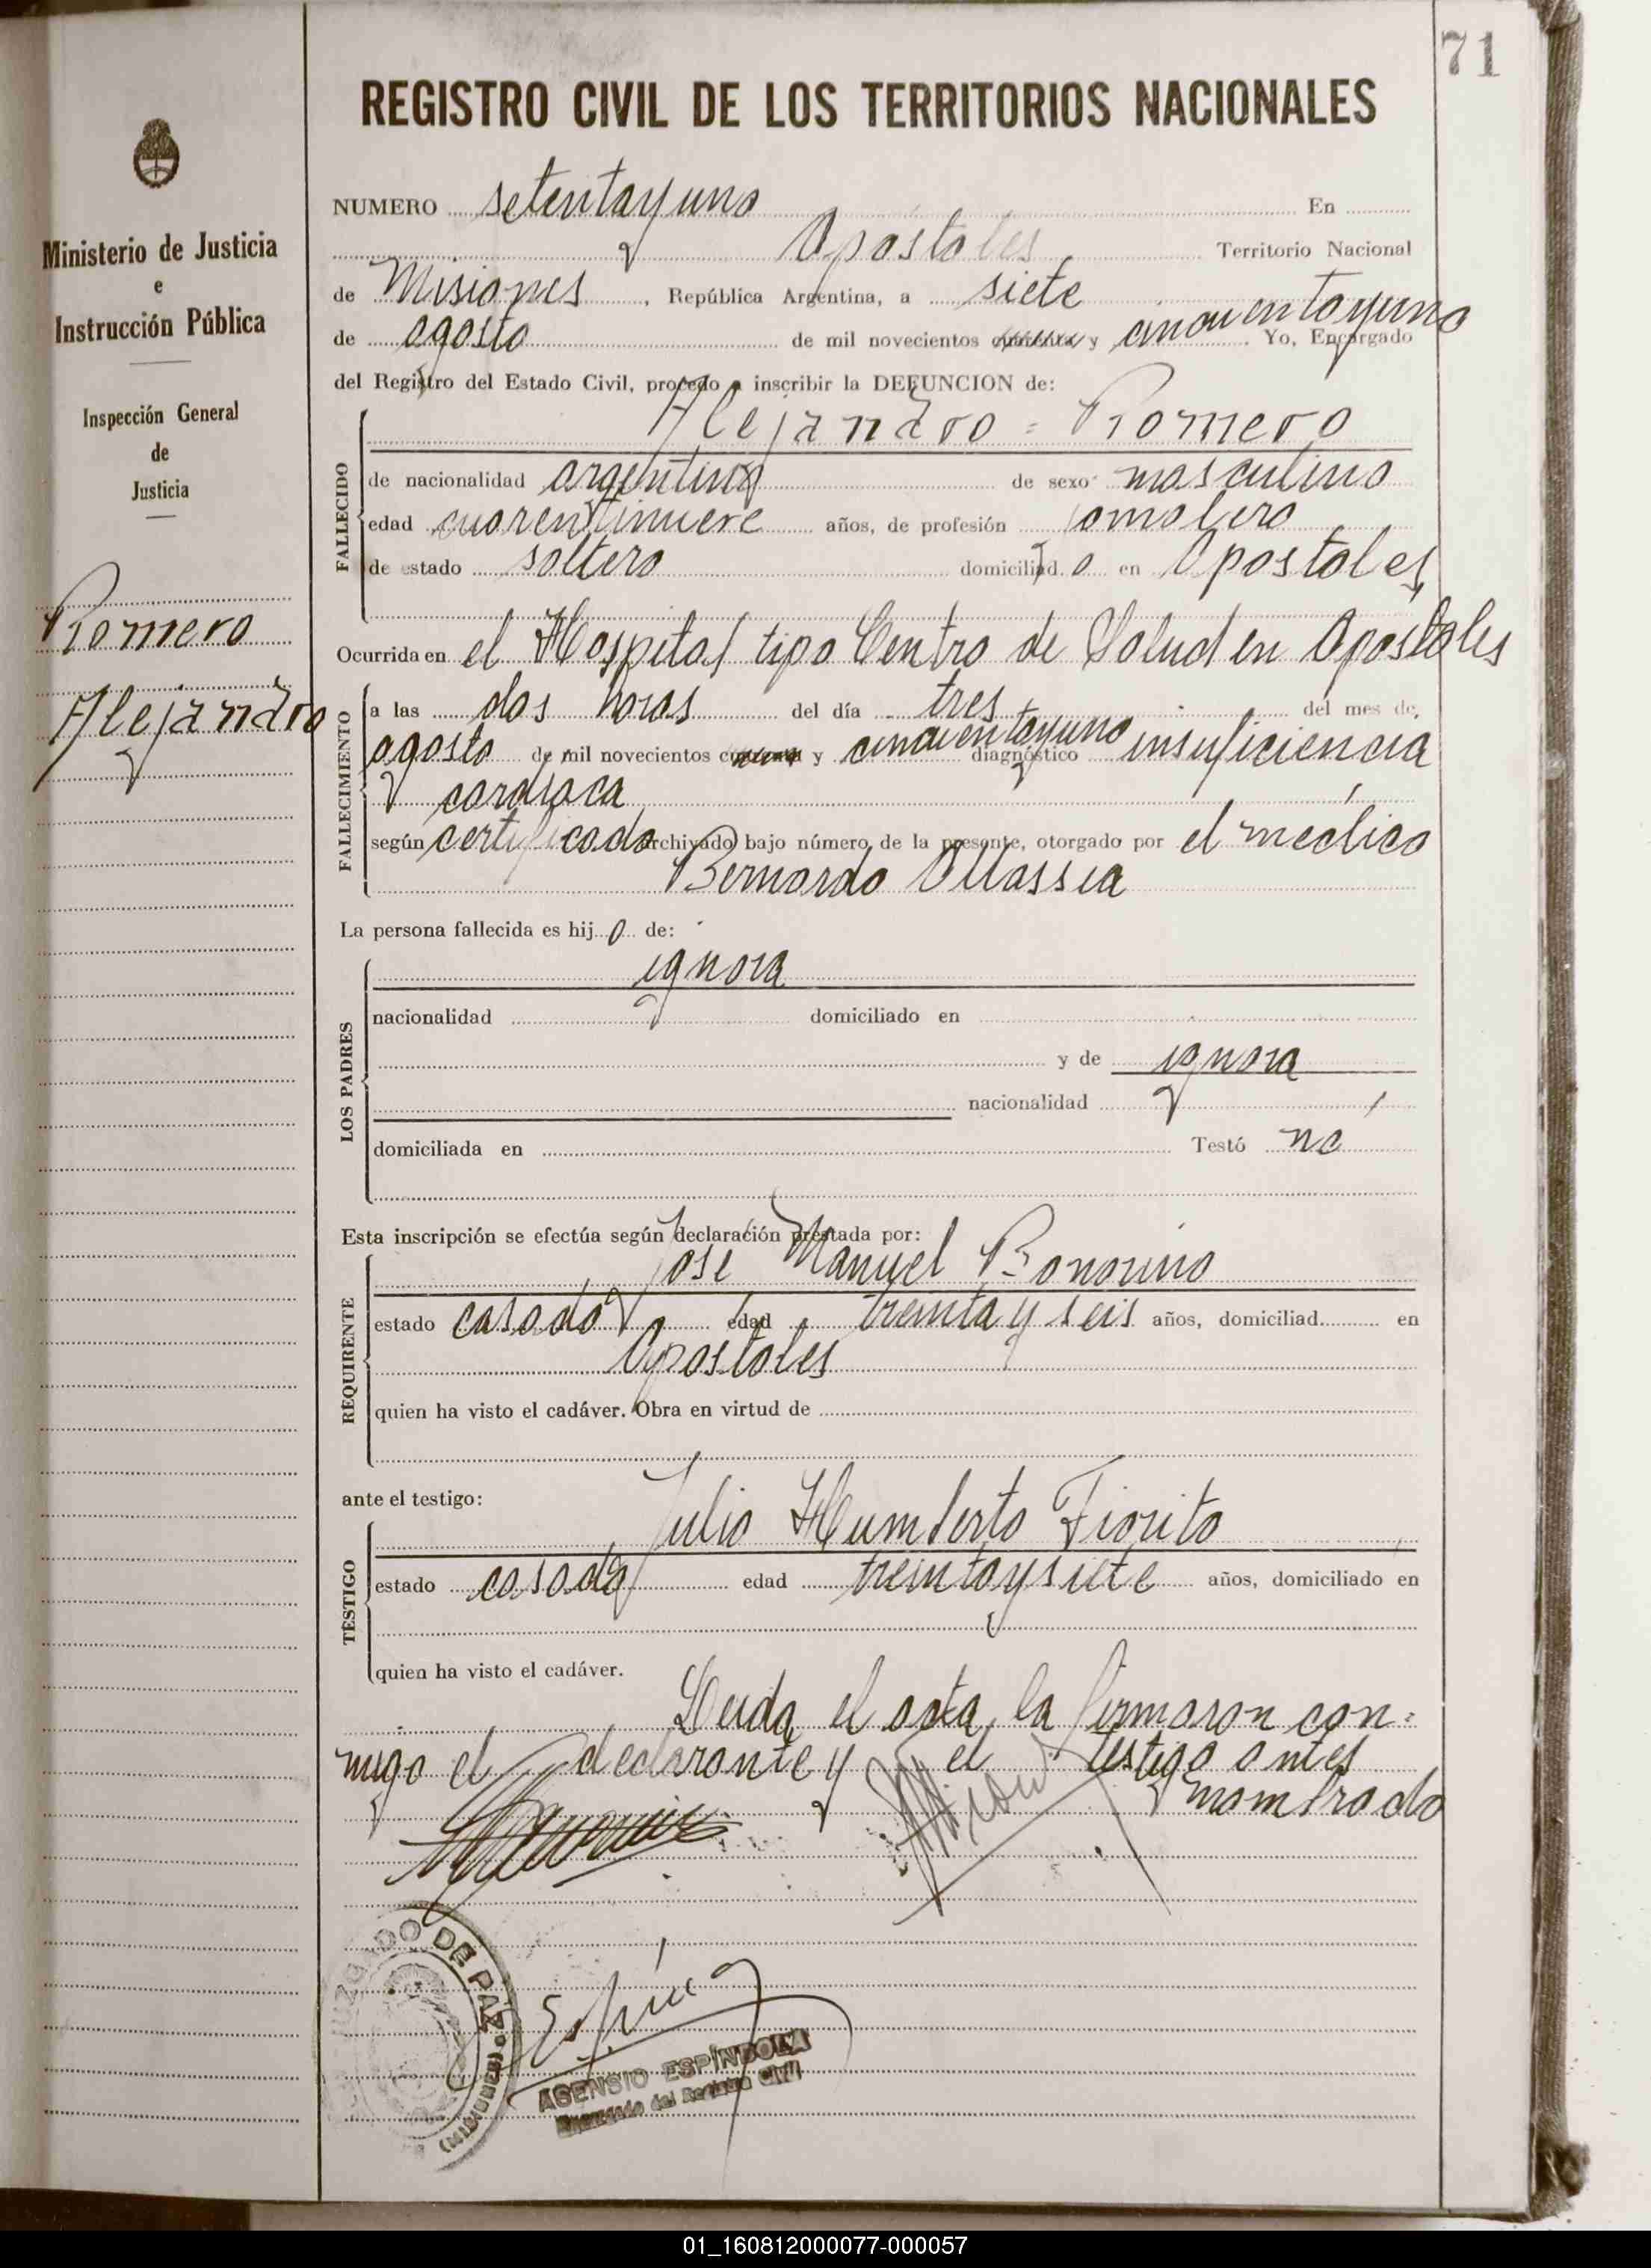 71
REGISTRO CIVIL DE LOS TERRITORIOS NACIONALES
Ministerio de Justicia
e
Instrucción Pública
Inspección General
de
Justicia
Romero
Alejandro
NUMERO setentayuno En
Apostoles Territorio Nacional
de Misiones, República Argentina, a siete
de agosto de mil novecientos cuarenta y cincuentayuno. Yo, Encargado
del Registro del Estado Civil, procedo a inscribir la DEFUNCION de:
FALLECIDO
Alejandro = Romero
de nacionalidad argentina de sexo masculino
edad cuarentinueve años, de profesión jornalero
de estado soltero domiciliad o en Apostoles,
Ocurrida en el Hospital tipo Centro de Salud en Apostoles
FALLECIMIENTO
a las dos horas del día tres del mes de,
agosto de mil novecientos cuarenta y cincuentayuno diagnóstico insuficiencia
cardiaca
según certificado archivado bajo número de la presente, otorgado por el medico
Bernardo
La persona fallecida es hij o de:
LOS PADRES
ignora
nacionalidad domiciliado en
y de ignora
nacionalidad
domiciliada en Testó no
Esta inscripción se efectúa según declaración prestada por:
REQUIRENTE
José Manuel Bonorino
estado casado edad treinta y seis años, domiciliad en
Apostoles
quien ha visto el cadáver. Obra en virtud de
ante el testigo:
TESTIGO
Julio Humberto Fiorito
estado casado edad treintaysiete años, domiciliado en
quien ha visto el cadáver.
Leida el acta, la firmaron con=
migo el declarante y el testigo antes
nombrado
JUZGADO DE PAZ
(MISIONES)
ASENSIO ESPÍNDOLA
Encargado del Registro Civil
01_160812000077-000057